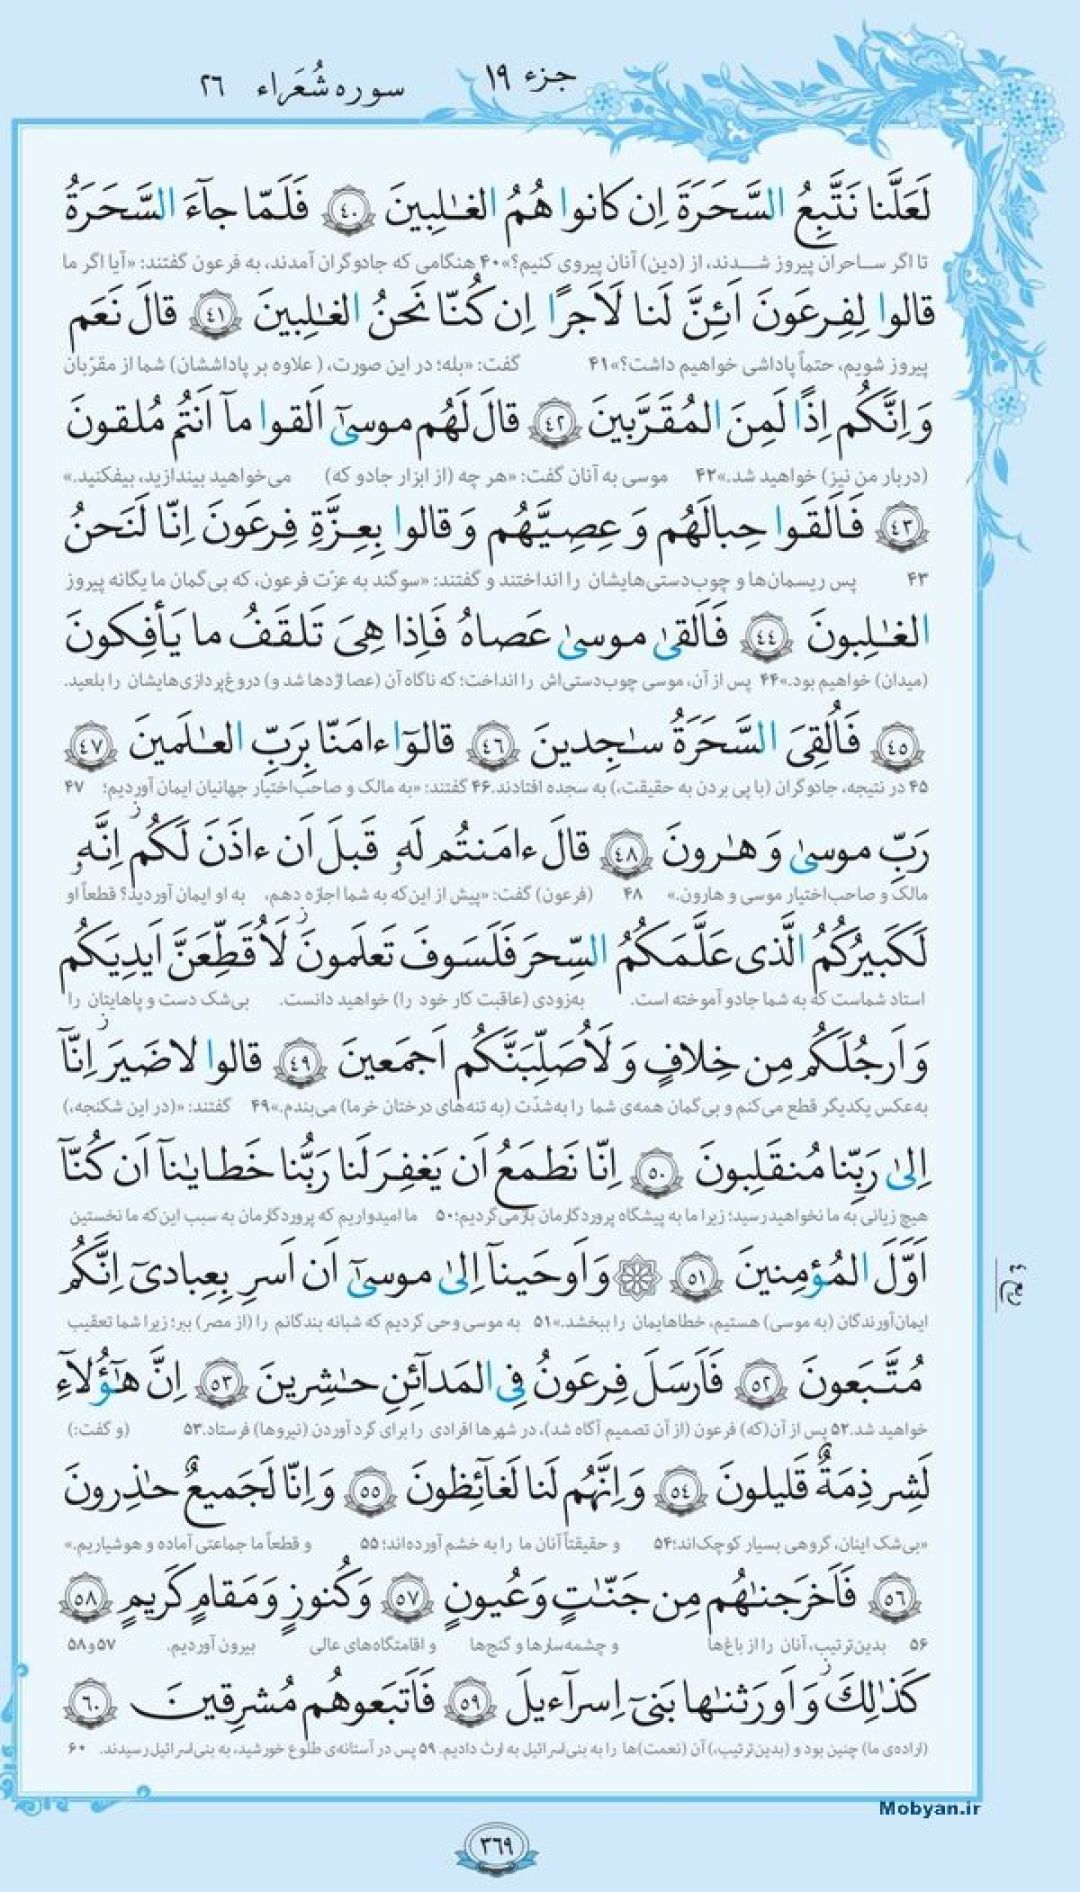 جزء ١٩
سوره شُعَراء ٢٦
لَعَلَّنا نَتَّبِعُ السَّحَرَةَ اِن كانوا هُمُ الغـٰلِبينَ ﴿٤٠﴾ فَلَمّا جآءَ السَّحَرَةُ
تا اگر ساحران پیروز شدند، از (دین) آنان پیروی کنیم؟»۴۰ هنگامی که جادوگران آمدند، به فرعون گفتند: «آیا اگر ما
قالوا لِفِرعَونَ اَئِنَّ لَنا لَاَجرًا اِن كُنّا نَحنُ الغـٰلِبينَ ﴿٤١﴾ قالَ نَعَم
پیروز شویم، حتماً پاداشی خواهیم داشت؟»۴۱ گفت: «بله؛ در این صورت، ( علاوه بر پاداششان) شما از مقرّبان
وَاِنَّكُم اِذًا لَمِنَ المُقَرَّبينَ ﴿٤٢﴾ قالَ لَهُم موسىٰٓ اَلقوا مآ اَنتُم مُلقونَ
(دربار من نیز) خواهید شد.»۴۲ موسی به آنان گفت: «هر چه (از ابزار جادو که) می‌خواهید بیندازید، بیفکنید.»
﴿٤٣﴾ فَاَلقَوا حِبالَهُم وَعِصِيَّهُم وَقالوا بِعِزَّةِ فِرعَونَ اِنّا لَنَحنُ
۴۳ پس ریسمان‌ها و چوب‌دستی‌هایشان را انداختند و گفتند: «سوگند به عزّت فرعون، که بی‌گمان ما یگانه پیروز
الغـٰلِبونَ ﴿٤٤﴾ فَاَلقىٰ موسىٰ عَصاهُ فَاِذا هِىَ تَلقَفُ ما يَأفِكونَ
(میدان) خواهیم بود.»۴۴ پس از آن، موسی چوب‌دستی‌اش را انداخت؛ که ناگاه آن (عصا اژدها شد و) دروغ‌پردازی‌هایشان را بلعید.
﴿٤٥﴾ فَاُلقِىَ السَّحَرَةُ سـٰجِدينَ ﴿٤٦﴾ قالوٓا ءامَنّا بِرَبِّ العـٰلَمينَ ﴿٤٧﴾
۴۵ در نتیجه، جادوگران (با پی بردن به حقیقت،) به سجده افتادند.۴۶ گفتند: «به مالک و صاحب‌اختیار جهانیان ایمان آوردیم؛ ۴۷
رَبِّ موسىٰ وَهـٰرونَ ﴿٤٨﴾ قالَ ءامَنتُم لَهۥ قَبلَ اَن ءاذَنَ لَكُم اِنَّهۥ
مالک و صاحب‌اختیار موسی و هارون.» ۴۸ (فرعون) گفت: «پیش از این‌که به شما اجازه دهم، به او ایمان آوردید؟ قطعاً او
لَكَبيرُكُمُ الَّذى عَلَّمَكُمُ السِّحرَ فَلَسَوفَ تَعلَمونَ لَاُقَطِّعَنَّ اَيدِيَكُم
استاد شماست که به شما جادو آموخته است. به‌زودی (عاقبت کار خود را) خواهید دانست. بی‌شک دست و پاهایتان را
وَاَرجُلَكُم مِن خِلافٍ وَلَاُصَلِّبَنَّكُم اَجمَعينَ ﴿٤٩﴾ قالوا لا ضَيرَ اِنّآ
به‌عکس یکدیگر قطع می‌کنم و بی‌گمان همه‌ی شما را به‌شدّت (به تنه‌های درختان خرما) می‌بندم.»۴۹ گفتند: «(در این شکنجه،)
اِلىٰ رَبِّنا مُنقَلِبونَ ﴿٥٠﴾ اِنّا نَطمَعُ اَن يَغفِرَ لَنا رَبُّنا خَطايـٰنآ اَن كُنّآ
هیچ زیانی به ما نخواهید رسید؛ زیرا ما به پیشگاه پروردگارمان بازمی‌گردیم؛۵۰ ما امیدواریم که پروردگارمان به سبب این‌که ما نخستین
اَوَّلَ المُؤمِنينَ ﴿٥١﴾ ۞ وَاَوحَينآ اِلىٰ موسىٰٓ اَن اَسرِ بِعِبادىٓ اِنَّكُم
ایمان‌آورندگان (به موسی) هستیم، خطاهایمان را ببخشد.»۵۱ به موسی وحی کردیم که شبانه بندگانم را (از مصر) ببر؛ زیرا شما تعقیب
ربع ٤
مُتَّبَعونَ ﴿٥٢﴾ فَاَرسَلَ فِرعَونُ فِى المَدآئِنِ حـٰشِرينَ ﴿٥٣﴾ اِنَّ هـٰٓؤُلآءِ
خواهید شد.۵۲ پس از آن(که) فرعون (از آن تصمیم آگاه شد)، در شهرها افرادی را برای گرد آوردن (نیروها) فرستاد.۵۳ (و گفت:)
لَشِرذِمَةٌ قَليلونَ ﴿٥٤﴾ وَاِنَّهُم لَنا لَغآئِظونَ ﴿٥٥﴾ وَاِنّا لَجَميعٌ حـٰذِرونَ
«بی‌شک اینان، گروهی بسیار کوچک‌اند؛۵۴ و حقیقتاً آنان ما را به خشم آورده‌اند؛۵۵ و قطعاً ما جماعتی آماده و هوشیاریم.»
﴿٥٦﴾ فَاَخرَجنـٰهُم مِن جَنّـٰتٍ وَعُيونٍ ﴿٥٧﴾ وَكُنوزٍ وَمَقامٍ كَريمٍ ﴿٥٨﴾
۵۶ بدین‌ترتیب، آنان را از باغ‌ها و چشمه‌سارها و گنج‌ها و اقامتگاه‌های عالی بیرون آوردیم. ۵۷و۵۸
كَذٰلِكَ وَاَورَثنـٰها بَنىٓ اِسرآءيلَ ﴿٥٩﴾ فَاَتبَعوهُم مُشرِقينَ ﴿٦٠﴾
(اراده‌ی ما) چنین بود و (بدین‌ترتیب،) آن (نعمت)ها را به بنی‌اسرائیل به ارث دادیم. ۵۹ پس در آستانه‌ی طلوع خورشید، به بنی‌اسرائیل رسیدند. ۶۰
Mobyan.ir
٣٦٩